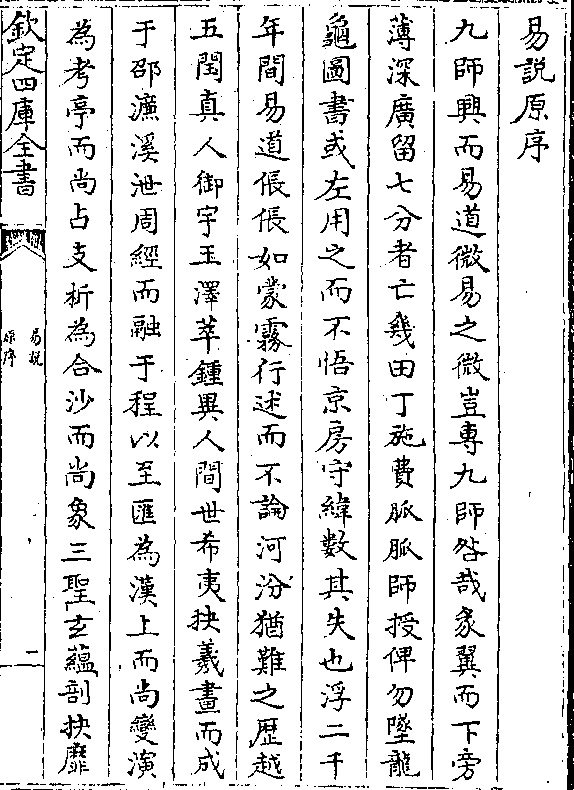 易説原序
九師興而易道微易之微豈專九師咎哉彖翼而下旁
薄深廣留七分者亡幾田丁施費脈脈師授俾勿墜龍
龜圖書或左用之而不悟京房守緯數其失也浮二千
年間易道倀倀如蒙霧行述而不論河汾猶難之歴越
五閏真人御宇玉澤萃鍾異人間世希夷抉羲畫而成
于邵濂溪泄周經而融于程以至匯為漢上而尚變演
為考亭而尚占支析為合沙而尚象三聖玄蘊剖抉靡
欽定四庫全書
易説
原序
二